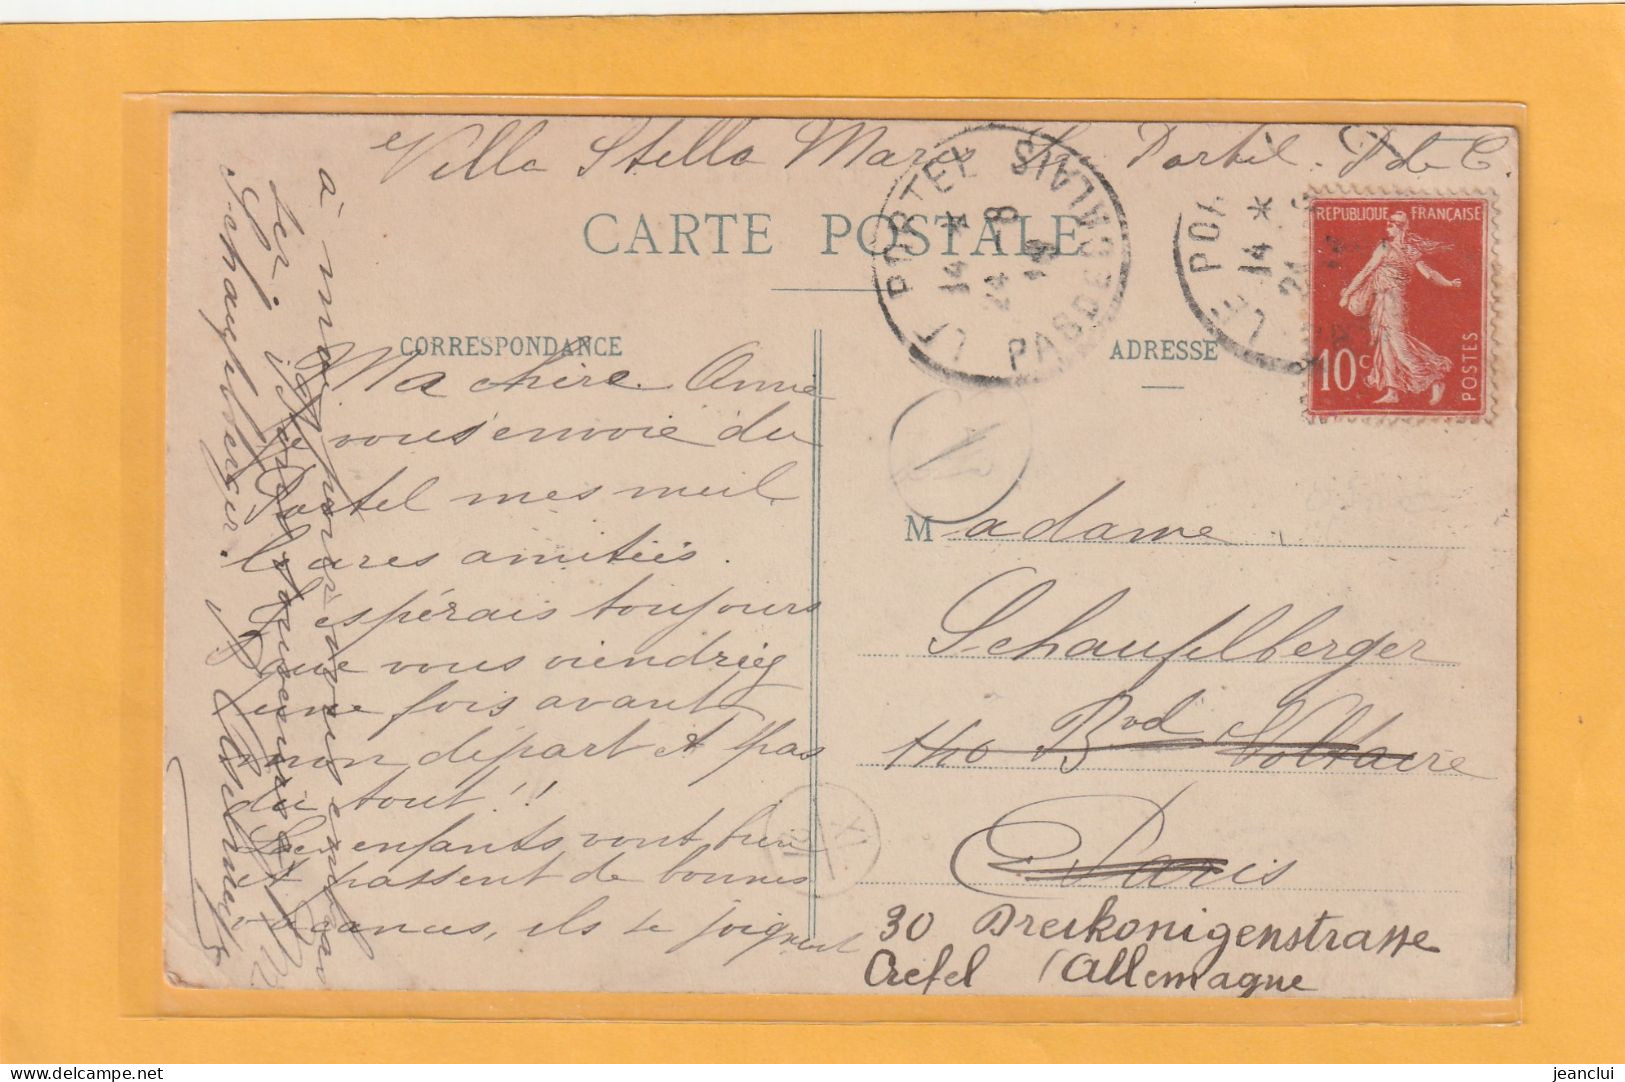 Villa Stella Maris Le Portel. P de C.
CARTE POSTALE
LE PORTEL
PAS DE CALAIS
14 *
24 8
LE POR
14 *
REPUBLIQUE FRANÇAISE
10 c
POSTES
CORRESPONDANCE
ADRESSE
Ma chère Annie
je vous envoie du
Portel mes meil
leures amitiés.
J'espérais toujours
que vous viendriez
une fois avant
mon départ et pas
du tout!!
Les enfants vont bien
et passent de bonnes
vacances, ils se joignent
à moi pour vous envoyer
Schaufelberger.
Madame
Schaufelberger
140 Bvd Voltaire
Paris
30 Dreikonigenstrasse
Crefel (Allemagne
XI
jeanclui
delcampe.net